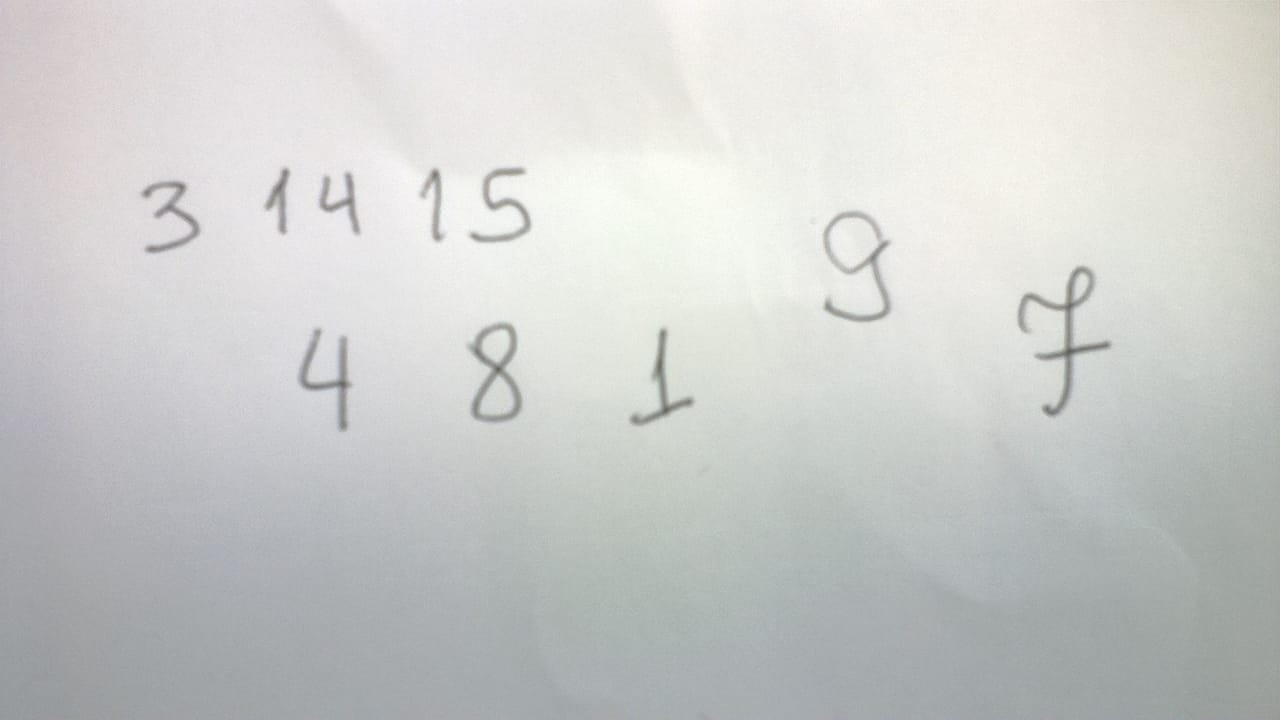 3 14 15
9
7
4 8 1